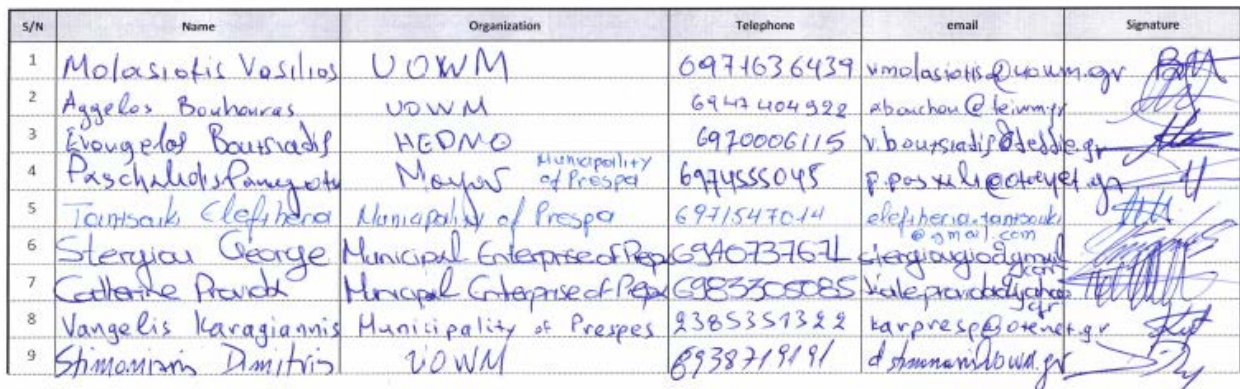 S/N Name Organization Telephone email Signature
1 Molasiotis Vasilios UOWM 6971636439 vmolasiotis@uowm.gr
2 Aggelos Bouhouras UOWM 6947404922 abouchou@teiwm.gr
3 Evangelos Boutsiadis HEDNO 6970006115 v.boutsiadis@deddie.gr
4 Paschalidis Mayor Municipality of Prespa 6974555045
5 Tantsouk Eleftheria Municipality of Prespa 6971547014 eleftheria.tantsouk
@gmail.com
6 Stergiou George Municipal Enterprise of 6940737671
7 Catherine Municipal Enterprise of 6983305085
8 Vangelis Karagiannis Municipality of Prespes 2385351322 karpresp@otenet.gr
9 Dimitris UOWM 6938719191